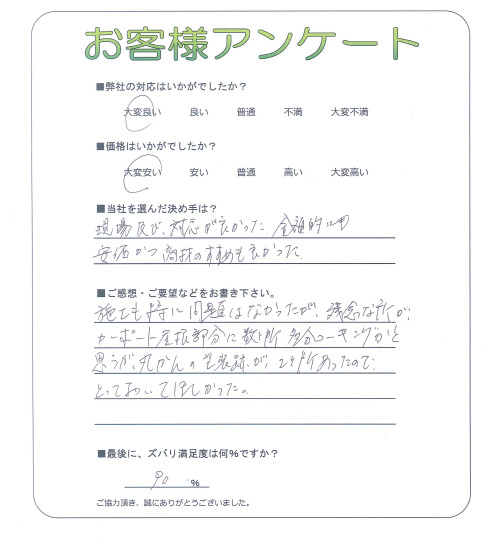 お客様アンケート
■弊社の対応はいかがでしたか？
大変良い 良い 普通 不満 大変不満
■価格はいかがでしたか？
大変安い 安い 普通 高い 大変高い
■当社を選んだ決め手は？
現場及び、対応が良かった 金額的にも
安価かつ 商材のすすめも良かった。
■ご感想・ご要望などをお書き下さい。
施工も特に問題はなかったが、残念な所が、
カーポート屋根部分に数ヶ所 多分コーキングかと
思うが、丸がんの 跡が、2ヶ所あったので
とっておいてほしかった。
■最後に、ズバリ満足度は何％ですか？
90 %
ご協力頂き、誠にありがとうございました。